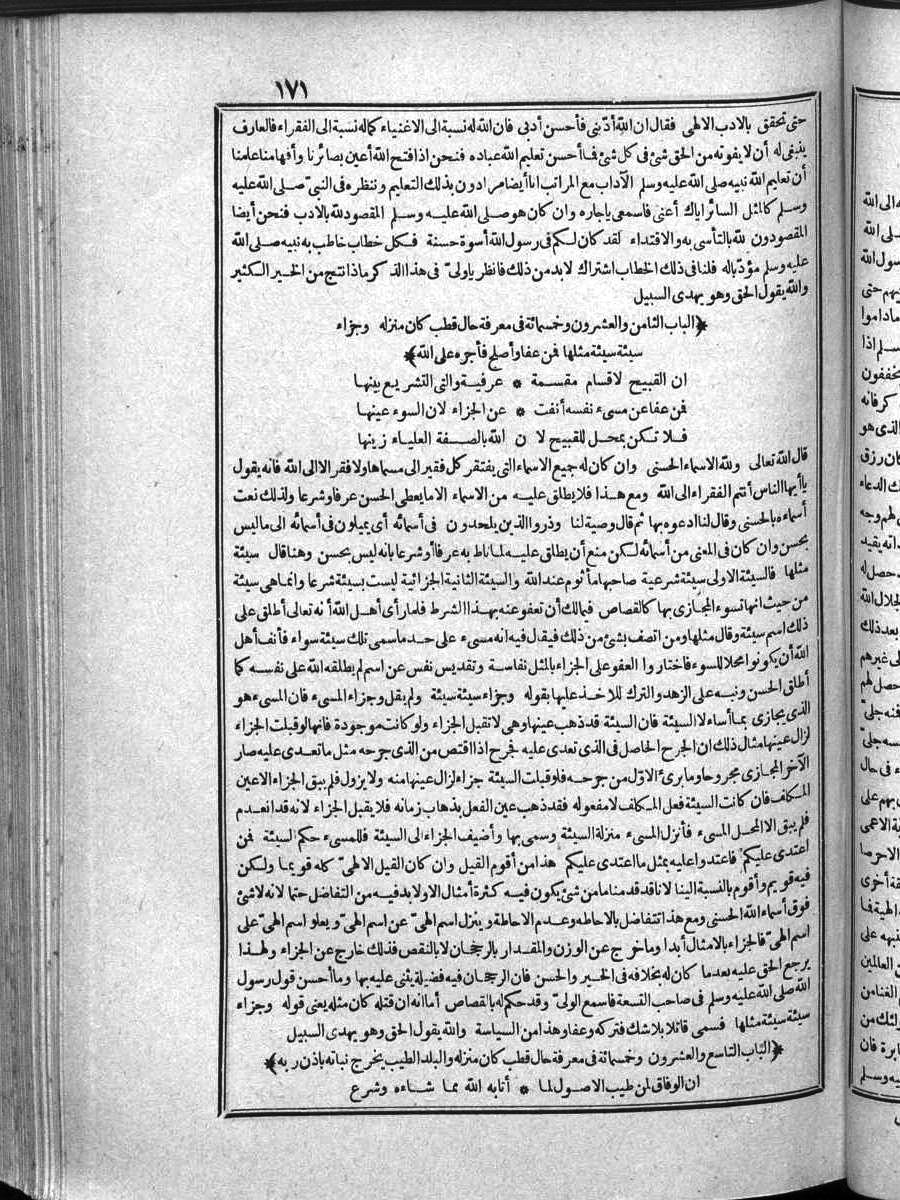 ١٧١
حتى تحقق بالادب الالهى فقال ان الله أدّبنى فأحسن أدبى فان الله له نسبة الى الاغنياء كماله نسبة الى الفقراء فالعارف
ينبغى له أن لا يفوته من الحق شئ فى كل شئ فما أحسن تعليم الله عباده فنحن اذا فتح الله أعين بصائرنا وأفهامنا علمنا
أن تعليم الله نبيه صلى الله عليه وسلم الآداب مع المراتب انا أيضا مرادون بذلك التعليم وننظره فى النبىّ صلى الله عليه
وسلم كالمثل السائر اياك أعنى فاسمعى ياجاره وان كان هو صلى الله عليه وسلم المقصود لله بالادب فنحن أيضا
المقصودون لله بالتأسى به والاقتداء لقد كان لكم فى رسول الله أسوة حسنة فكل خطاب خاطب به نبيه صلى الله
عليه وسلم مؤدّبا له فلنا فى ذلك الخطاب اشتراك لا بد من ذلك فانظر ياولىّ فى هذا الذكر ماذا نتج من الخير الكثير
والله يقول الحق وهو يهدى السبيل
﴿الباب الثامن والعشرون وخمسمائة فى معرفة حال قطب كان منزله وجزاء
سيئة سيئة مثلها فمن عفا وأصلح فأجره على الله﴾
ان القبيح لاقسام مقسمة * عرفية والتى التشريع بينها
فمن عفا عن مسىء نفسه أنفت * عن الجزاء لان السوء عينها
فلا تكن بمحل للقبيح لان الله بالصفة العلياء زينها
قال الله تعالى ولله الاسماء الحسنى وان كان له جميع الاسماء التى يفتقر كل فقير الى مسماها ولا فقر الا الى الله فانه يقول
ياأيها الناس أنتم الفقراء الى الله ومع هذا فلا يطلق عليه من الاسماء الا ما يعطى الحسن عرفا وشرعا ولذلك نعت
أسماءه بالحسنى وقال لنا ادعوه بها ثم قال وصية لنا وذروا الذين يلحدون فى أسمائه أى يميلون فى أسمائه الى ما ليس
بحسن وان كان فى المعنى من أسمائه لكن منع أن يطلق عليه لما ناط به عرفا أو شرعا بانه ليس بحسن وهنا قال سيئة
مثلها فالسيئة الاولى سيئة شرعية صاحبها مأثوم عند الله والسيئة الثانية الجزائية ليست بسيئة شرعا وانما هى سيئة
من حيث انها تسوء المجازى بها كالقصاص فيمالك أن تعفو عنه بهذا الشرط فلما رأى أهل الله أنه تعالى أطلق على
ذلك اسم سيئة وقال مثلها ومن اتصف بشئ من ذلك فيقل فيه انه مسىء على حد ما سمى تلك سيئة سواء فأنف أهل
الله أن يكونوا محلا للسوء فاختاروا العفو على الجزاء بالمثل نفاسة وتقديس نفس عن اسم لم يطلقه الله على نفسه كما
أطلق الحسن ونبه على الزهد والترك للاخذ عليها بقوله وجزاء سيئة سيئة ولم يقل وجزاء المسىء فان المسىء هو
الذى يجازى بما أساء لا السيئة فان السيئة قد ذهب عينها وهى لا تقبل الجزاء ولو كانت موجودة فانها لو قبلت الجزاء
لزال عينها مثال ذلك ان الجرح الحاصل فى الذى تعدى عليه فجرح اذا اقتص من الذى جرحه مثل ما تعدى عليه صار
الآخر المجازى مجروحا وما برئ الاوّل من جرحه فلو قبلت السيئة جزاء لزال عينها منه ولا يزول فلم يبق الجزاء الا عين
المكلف فان كانت السيئة فعل المكلف لا مفعوله فقد ذهب عين الفعل بذهاب زمانه فلا يقبل الجزاء لانه قد انعدم
فلم يبق الا المحل المسىء فأنزل المسىء منزلة السيئة وسمى بها وأضيف الجزاء الى السيئة فللمسىء حكم السيئة فمن
اعتدى عليكم فاعتدوا عليه بمثل ما اعتدى عليكم هذا من أقوم القيل وان كان القيل الالهىّ كله قويما ولكن
فيه قويم وأقوم بالنسبة الينا لانا قد قدمنا ما من شئ يكون فيه كثرة أمثال الا ولا بد فيه من التفاضل حتما لانه لا شئ
فوق أسماء الله الحسنى ومع هذا تتفاضل بالاحاطة وعدم الاحاطة وينزل اسم الهىّ عن اسم الهىّ ويعلو اسم الهىّ على
اسم الهىّ فالجزاء بالامثال أبدا وما خرج عن الوزن والمقدار بالرجحان لا بالنقص فذلك خارج عن الجزاء ولهذا
يرجع الحق عليه بعد ما كان له بخلافه فى الخير والحسن فان الرجحان فيه فضيلة يثنى عليه بها وما أحسن قول رسول
الله صلى الله عليه وسلم فى صاحب النسعة فاسمع الولىّ وقد حكم له بالقصاص أما انه ان قتله كان مثله يعنى قوله وجزاء
سيئة سيئة مثلها فسمى قاتلا بلا شك فتركه وعفا وهذا من السياسة والله يقول الحق وهو يهدى السبيل
﴿الباب التاسع والعشرون وخمسمائة فى معرفة حال قطب كان منزله والبلد الطيب يخرج نباته باذن ربه﴾
ان الوفاق لمن طيب الاصول لما * أتابه الله مما شاءه وشرع